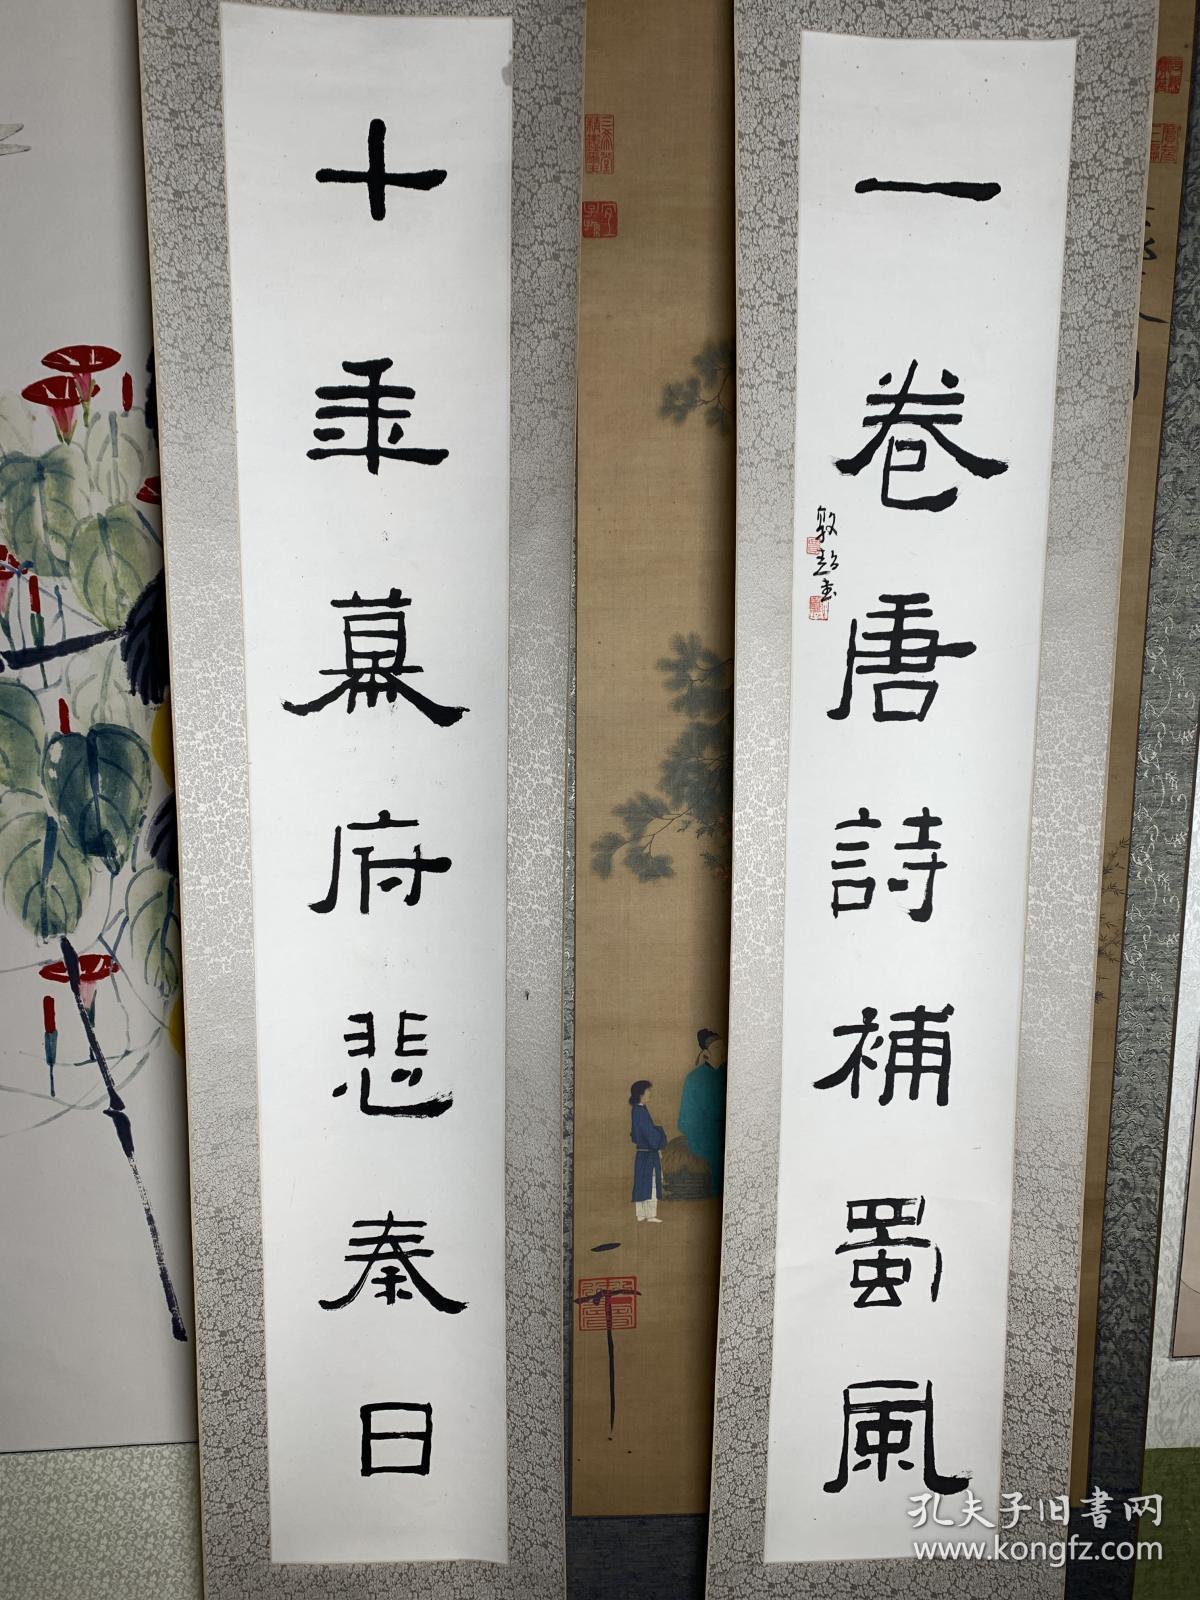 一卷唐詩補蜀風
敦超書
十年幕府悲秦日
孔夫子旧書网
www.kongfz.com